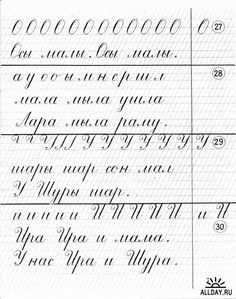 О О О О О О О О О О О О О 27
Осы малы. Осы малы.
а у о о ы м н с р ш л 28
мала мыла ушла
Лара мыла раму.
У У У У У У У У 29
шары шар сон мал
У Шуры шар.
и и и и и И И И И И и И 30
Ира Ира и мама.
У нас Ира и Шура.
ALLDAY.RU